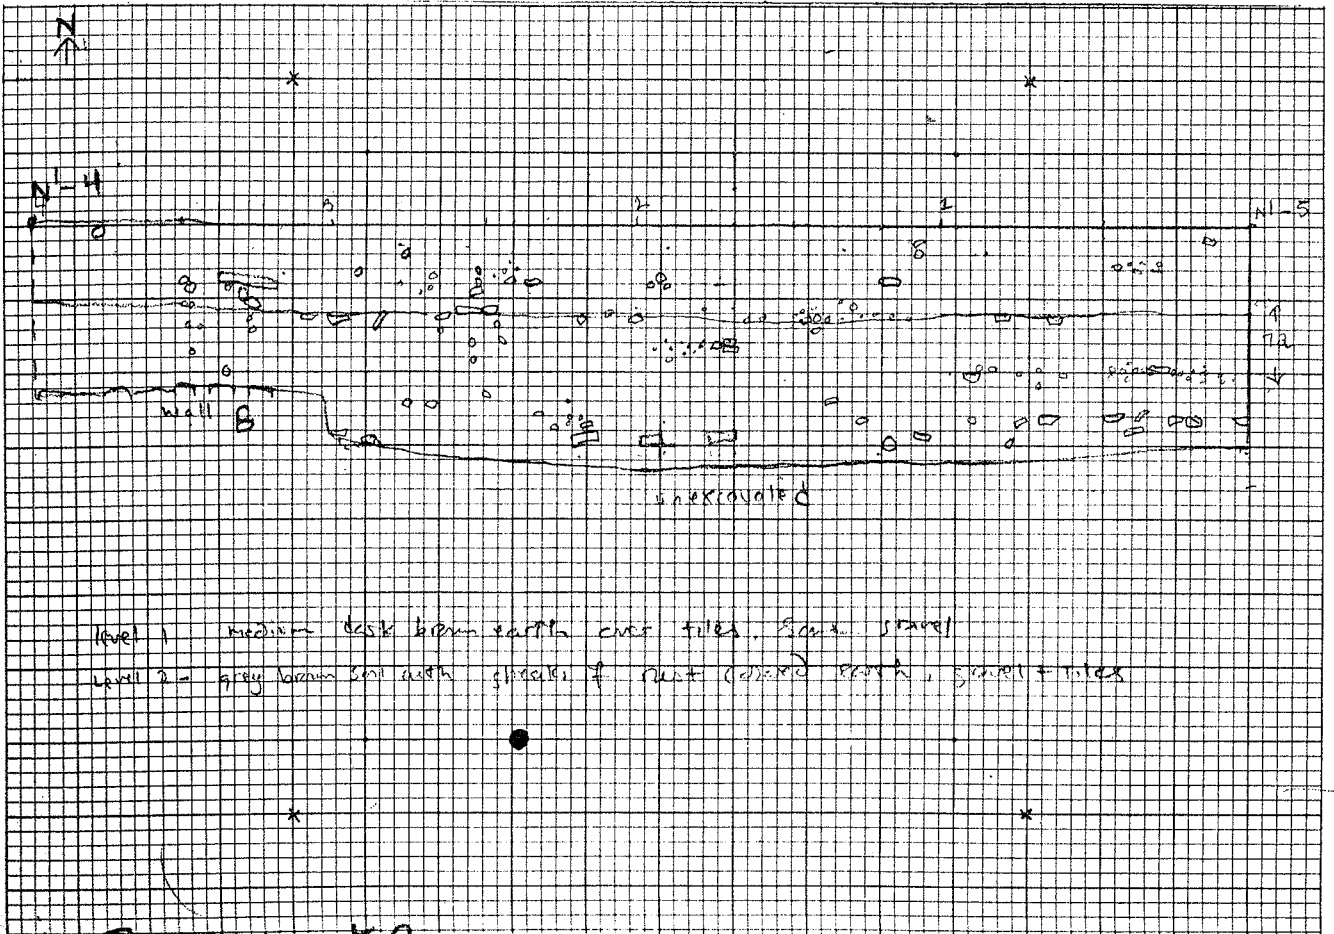 N
N1-4
3
2
1
N1-5
72
wall B
unexcavated
level 1 medium dark brown earth over tiles. Some gravel
Level 2 - grey brown soil with streaks of rust colored earth, gravel + tiles